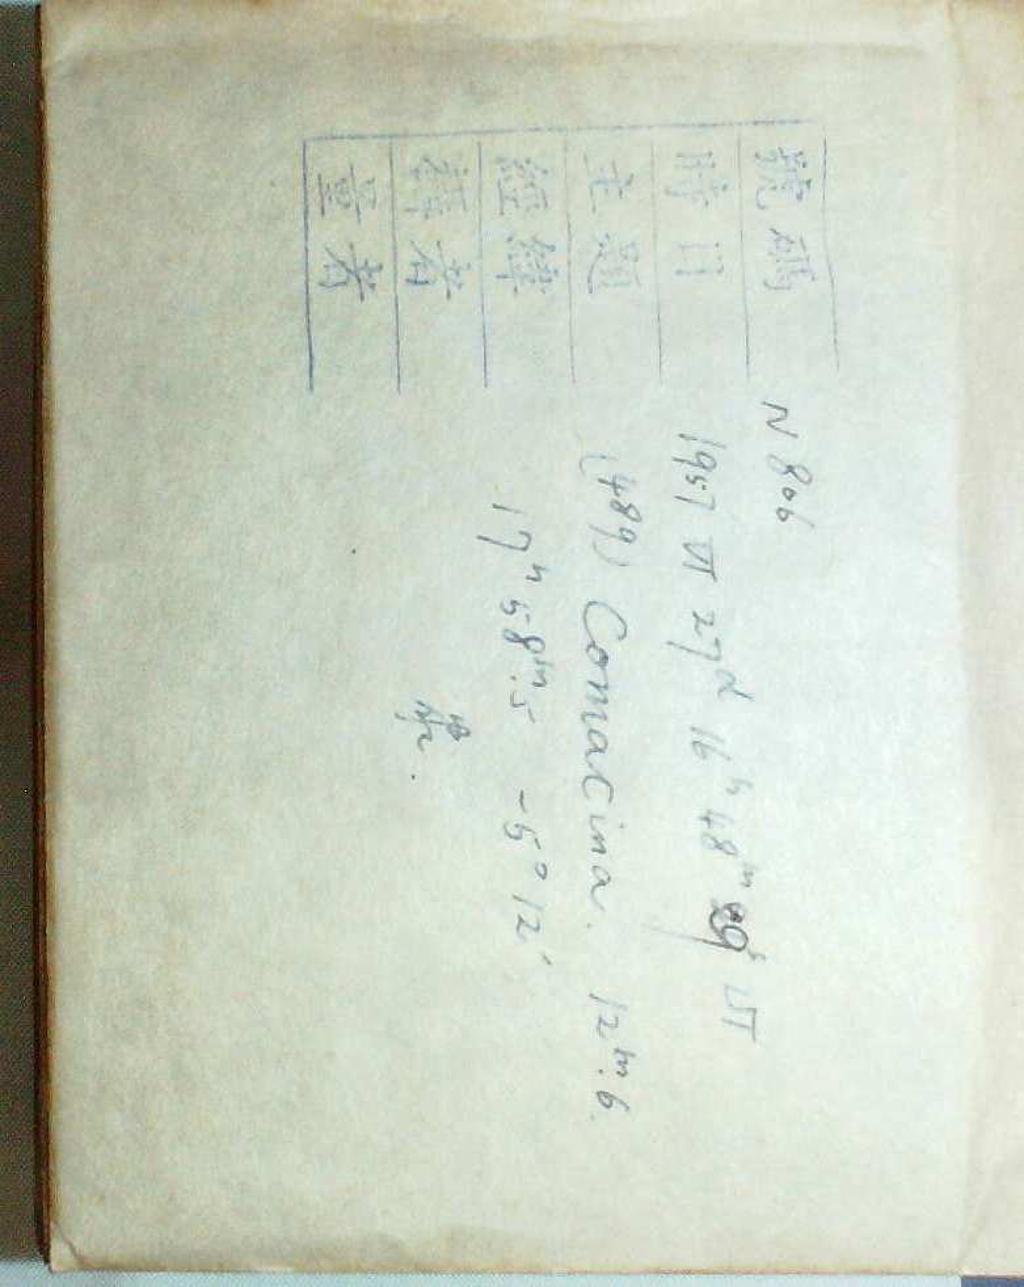 號碼 N 806
時日 1957 VI 27ᵈ 16ʰ 48ᵐ 29ˢ UT
主題 (489) Comacina. 12ᵐ.6
經緯 17ʰ 58ᵐ.5 -5° 12'
量者